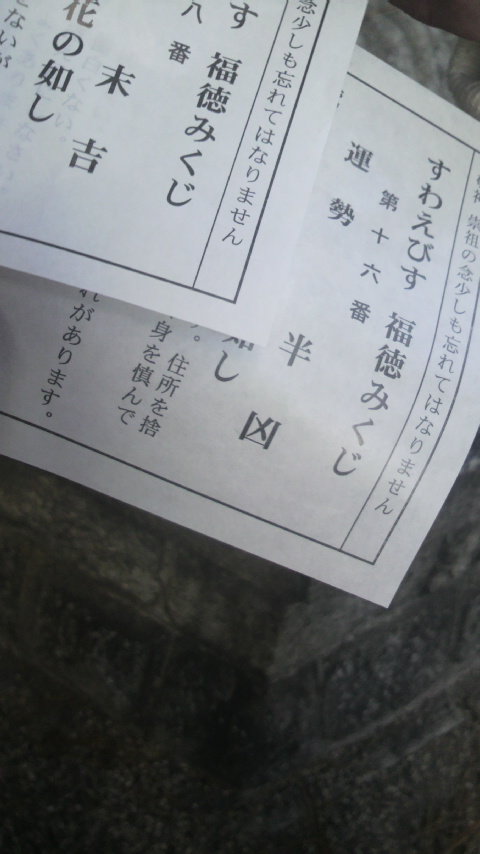 念少しも忘れてはなりません
す 福徳みくじ
八番
末吉
花の如し
敬神 崇祖の念少しも忘れてはなりません
すわえびす 福徳みくじ
第十六番
運勢
半凶
如し
。住所を捨
身を慎んで
れがあります。